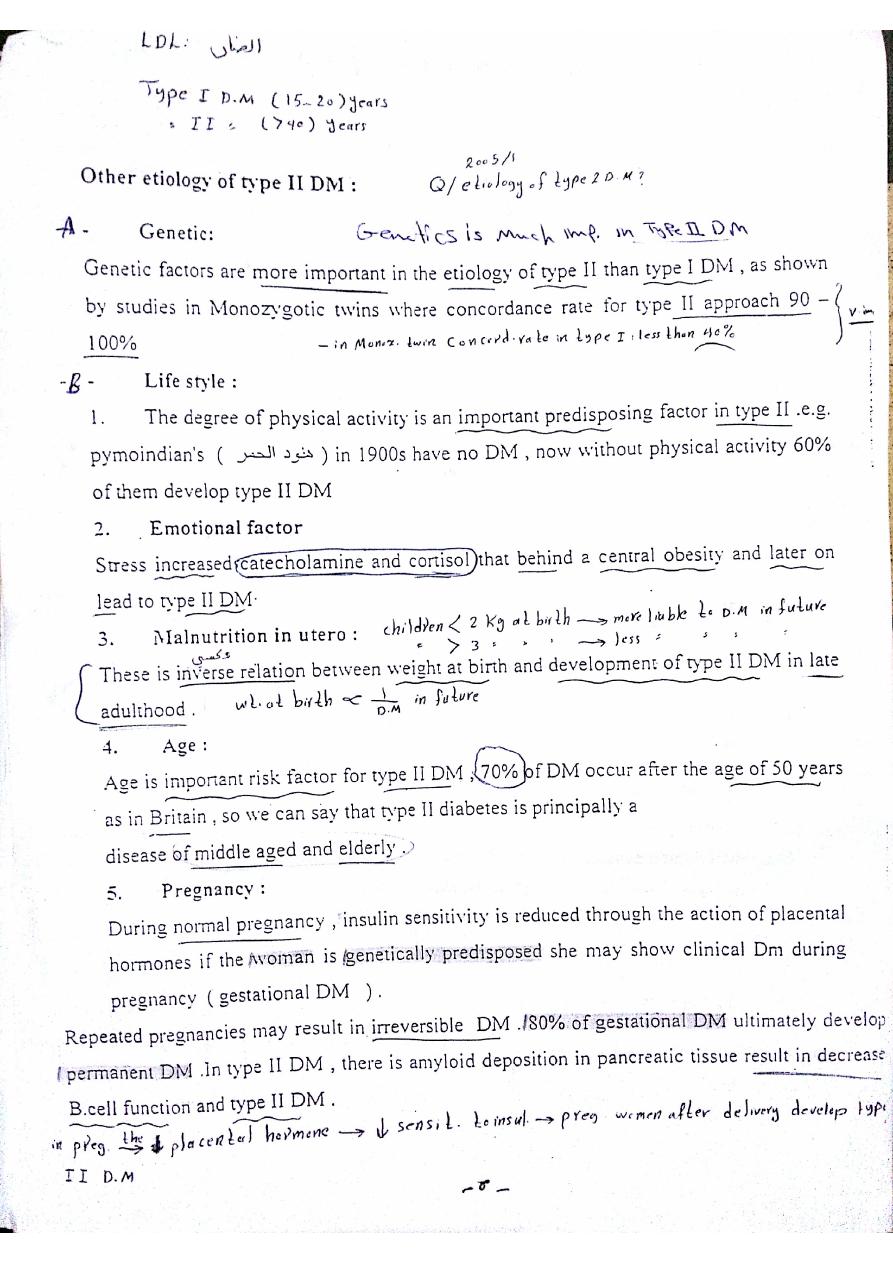 LDL: الضار
Type I D.M (15-20) years
" II " (>40) years
Other etiology of type II DM :
2005/1
Q/ etiology of type 2 D.M?
A - Genetic: Genetics is much imp. in Type II DM
Genetic factors are more important in the etiology of type II than type I DM , as shown
by studies in Monozygotic twins where concordance rate for type II approach 90 –
100% - in Monoz. twin Concord. rate in type I : less than 40%
-B - Life style :
1. The degree of physical activity is an important predisposing factor in type II .e.g.
pymoindian's ( هنود الحمر ) in 1900s have no DM , now without physical activity 60%
of them develop type II DM
2. Emotional factor
Stress increased catecholamine and cortisol that behind a central obesity and later on
lead to type II DM.
children < 2 Kg at birth → more liable to D.M in future
3. Malnutrition in utero :
" > 3 " " " → less " " " "
عكسي
These is inverse relation between weight at birth and development of type II DM in late
adulthood . wt. at birth ∝ 1/D.M in future
4. Age :
Age is important risk factor for type II DM , 70% of DM occur after the age of 50 years
as in Britain , so we can say that type II diabetes is principally a
disease of middle aged and elderly .
5. Pregnancy :
During normal pregnancy , insulin sensitivity is reduced through the action of placental
hormones if the woman is genetically predisposed she may show clinical Dm during
pregnancy ( gestational DM ) .
Repeated pregnancies may result in irreversible DM ./80% of gestational DM ultimately develop
permanent DM .In type II DM , there is amyloid deposition in pancreatic tissue result in decrease
B.cell function and type II DM .
in preg. the → placental hormone → ↓ sensit. to insul. → preg women after delivery develop type
II D.M